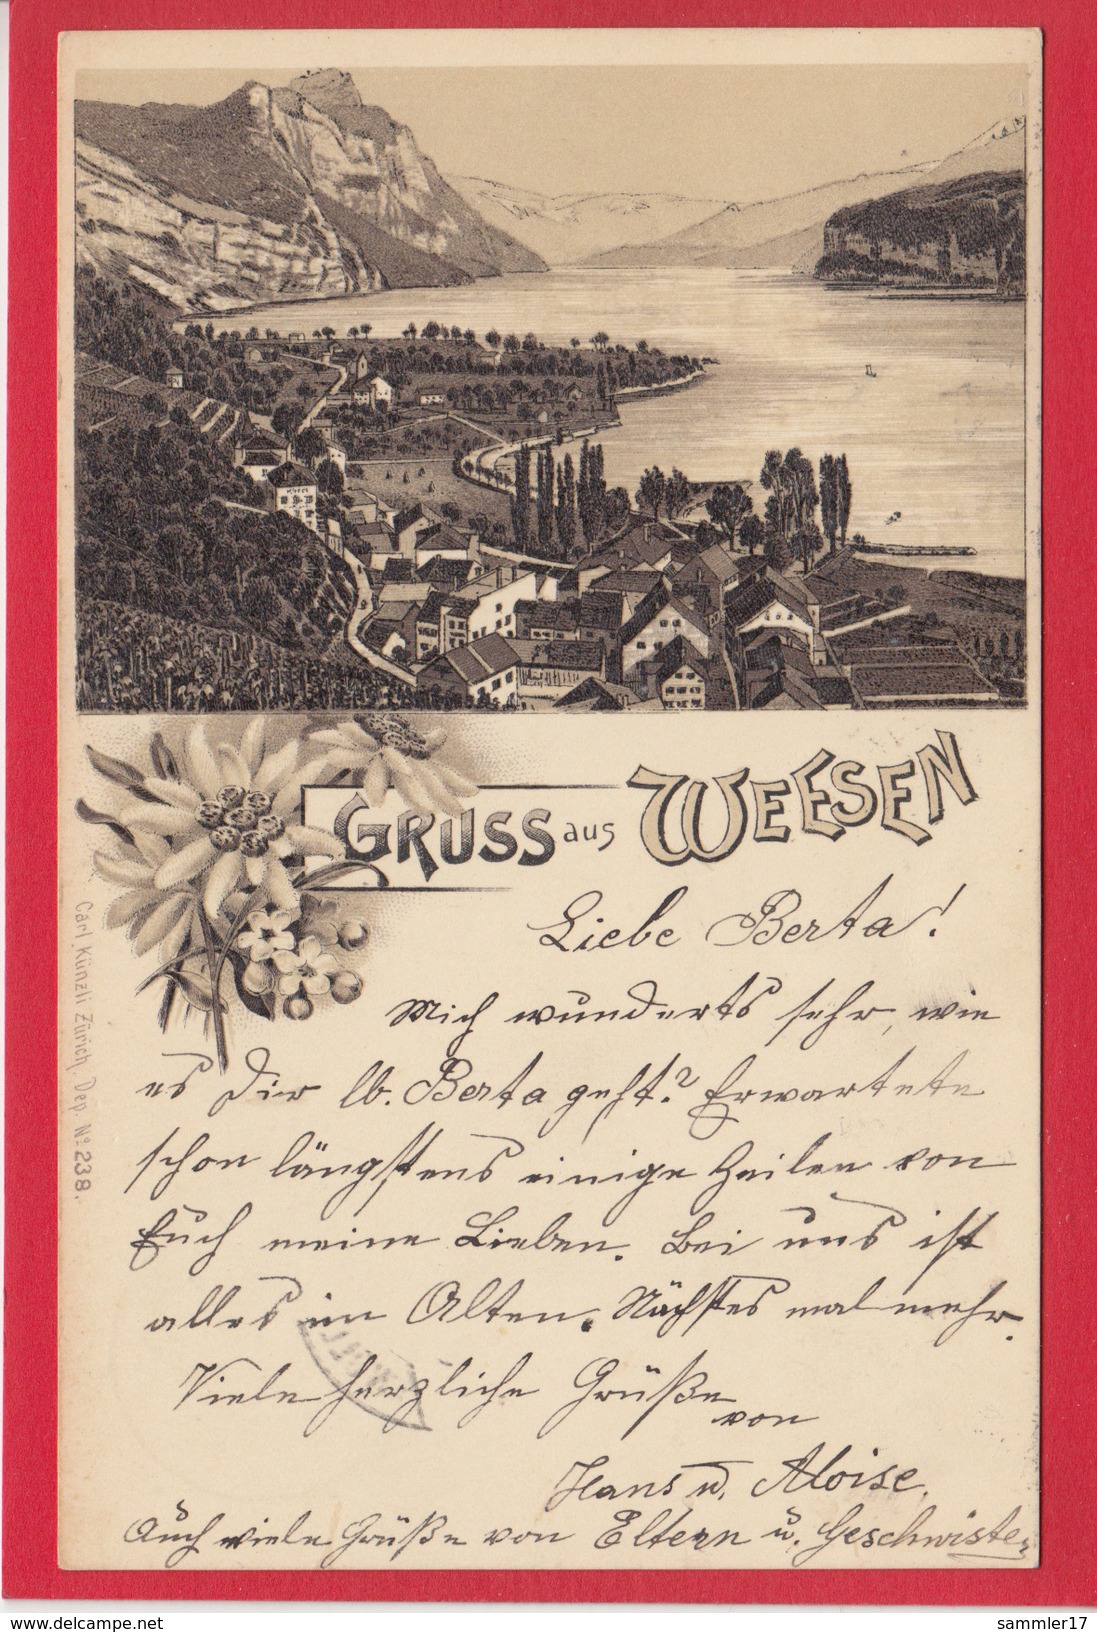 HOTEL
GRUSS aus WEESEN
Carl Künzli Zürich, Dep. No. 238.
Liebe Berta!
Mich wunderts sehr, wie
es Dir lb. Berta geht? Erwartete
schon längstens einige Zeilen von
Euch meine Lieben. Bei uns ist
alles im Alten. Nächstes mal mehr.
Viele herzliche Grüße
von
Hans u. Aloise.
Auch viele Grüße von Eltern u. Geschwister
www.delcampe.net
sammler17